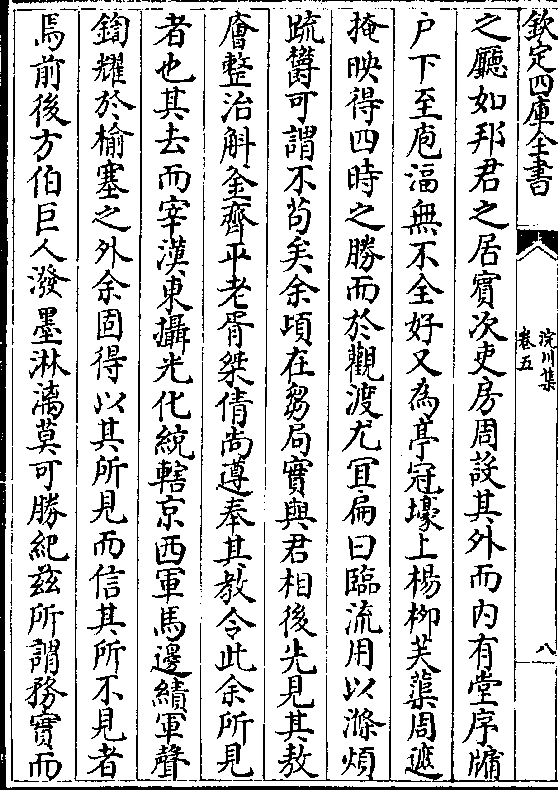 欽定四庫全書
浣川集
卷五
八
之廳如邦君之居賓次吏房周設其外而内有堂序牖
户下至庖湢無不全好又為亭冠壕上楊栁芙蕖周遮
掩映得四時之勝而於觀渡尤宜扁曰臨流用以滌煩
疏鬱可謂不苟矣余頃在芻局實與君相後先見其敖
廥整治斛金齊平老胥桀倩尚遵奉其教令此余所見
者也其去而宰漢東攝光化統轄京西軍馬邊績軍聲
鍧耀於榆塞之外余固得以其所見而信其所不見者
焉前後方伯巨人潑墨淋漓莫可勝紀兹所謂務實而